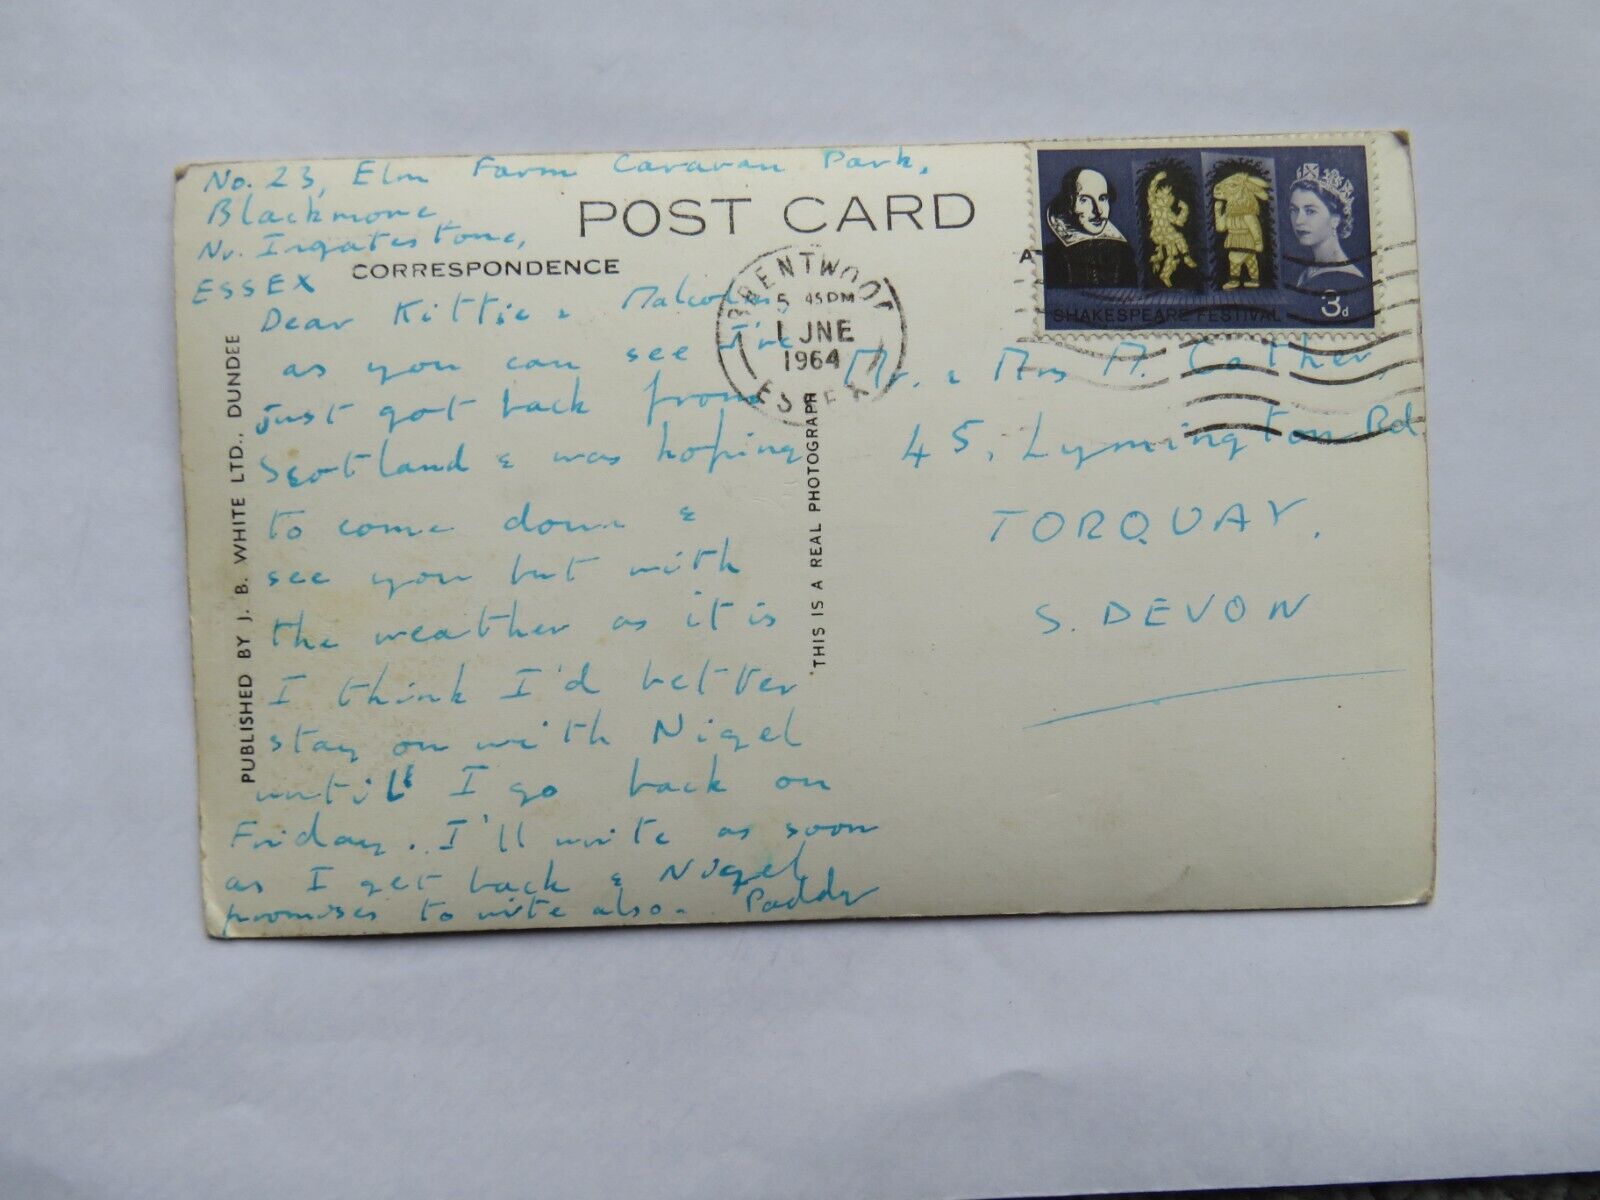 No. 23, Elm Farm Caravan Park,
Blackmore,
Nr. Ingatestone,
ESSEX
POST CARD
CORRESPONDENCE
Dear Kittie & Malcolm,
as you can see I've
just got back from
Scotland & was hoping
to come down &
see you but with
the weather as it is
I think I'd better
stay on with Nigel
until I go back on
Friday. I'll write as soon
as I get back & Nigel
promises to write also. Paddy
PUBLISHED BY J. B. WHITE LTD., DUNDEE
THIS IS A REAL PHOTOGRAPH
BRENTWOOD
5 45PM
1 JNE
1964
ESSEX
SHAKESPEARE FESTIVAL 3d
A
Mr. & Mrs M. Cather,
45, Lymington Rd
TORQUAY.
S. DEVON